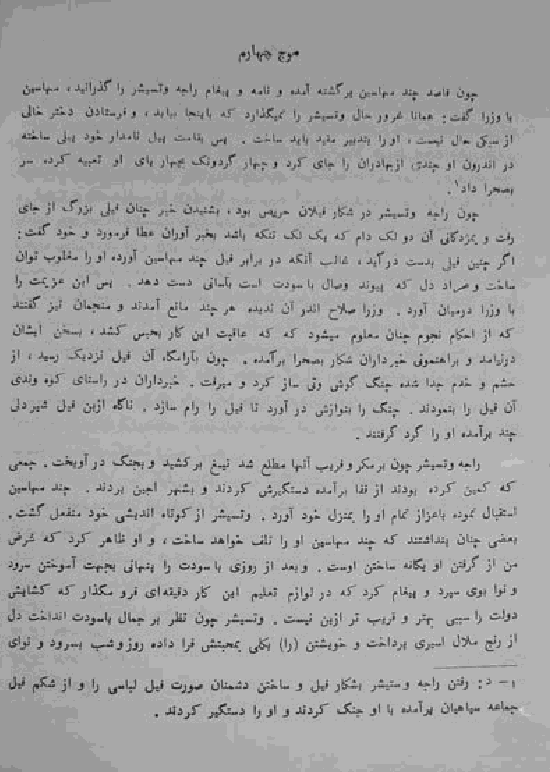 موج چهارم
چون قاصد چند مهاسین برگشته آمده و نامه و پیغام راجه وتسیشر را گذرانید، مهاسین
با وزرا گفت: همانا غرور حال وتسیشر را نمیگذارد که باینجا بیاید، و فرستادن دختر خالی
از سبکی حال نیست، او را بتدبیر مقید باید ساخت. پس بقامت پیل نامدار خود پیلی ساخته
در اندرون او چندی از بهادران را جای کرد و چهار گردونک بچهار پای او تعبیه کرده سر
بصحرا داد۱.
چون راجه وتسیشر در شکار فیلان حریص بود، بشنیدن خبر چنان فیلی بزرگ از جای
رفت و بمژدگانی آن دو لک دام که یک لک تنکه باشد بخبر آوران عطا فرمود و خود گفت:
اگر چنین فیلی بدست در آید، غالب آنکه در برابر فیل چند مهاسین آورده او را مغلوب توان
ساخت و مراد دل که پیوند وصال باسودت است بآسانی دست دهد. پس این عزیمت را
با وزرا درمیان آورد. وزرا صلاح اندر آن ندیده هر چند مانع آمدند و منجمان نیز گفتند
که از احکام نجوم چنان معلوم میشود که عاقبت این کار بحبس کشد، بسخن ایشان
درنیامد و براهنمونی خبرداران شکار بصحرا برآمده. چون بآرامگاه آن فیل نزدیک رسید، از
حشم و خدم جدا شده چنگ گرفتی ونی ساز کرد و میرفت. خبرداران در راستای کوه وندی
آن فیل را بنمودند. چنگ را بنوازش در آورد تا فیل را رام سازد. ناگاه ازین فیل شیردلی
چند برآمده او را گرد گرفتند.
راجه وتسیشر چون بر مکر و فریب آنها مطلع شد تیغ برکشید و بجنگ در آویخت. جمعی
که کمین کرده بودند از قفا برآمده دستگیرش کردند و بشهر اجین بردند. چند مهاسین
استقبال نموده باعزاز تمام او را بمنزل خود آورد. وتسیشر از کوتاه اندیشی خود منفعل گشت.
بعضی چنان پنداشتند که چند مهاسین او را تلف خواهد ساخت، و او ظاهر کرد که غرض
من از گرفتن او یگانه ساختن اوست. و بعد از روزی باسودت را پنهانی بجهت آموختن سرود
و نوا بوی سپرد و پیغام کرد که در لوازم تعلیم این کار دقیقه‌ای فرو مگذار که گشایش
دولت را سببی بهتر و قریب تر ازین نیست. وتسیشر چون نظر بر جمال باسودت انداخت دل
از رنج ملال اسیری پرداخت و خویشتن (را) بکلی بمحبتش فرا داده روز و شب بسرود و نوای
۱- د: رفتن راجه وستیشر بشکار فیل و ساختن دشمنان صورت فیل لباسی را و از شکم فیل
جماعه سپاهیان برآمده با او جنگ کردند و او را دستگیر کردند.